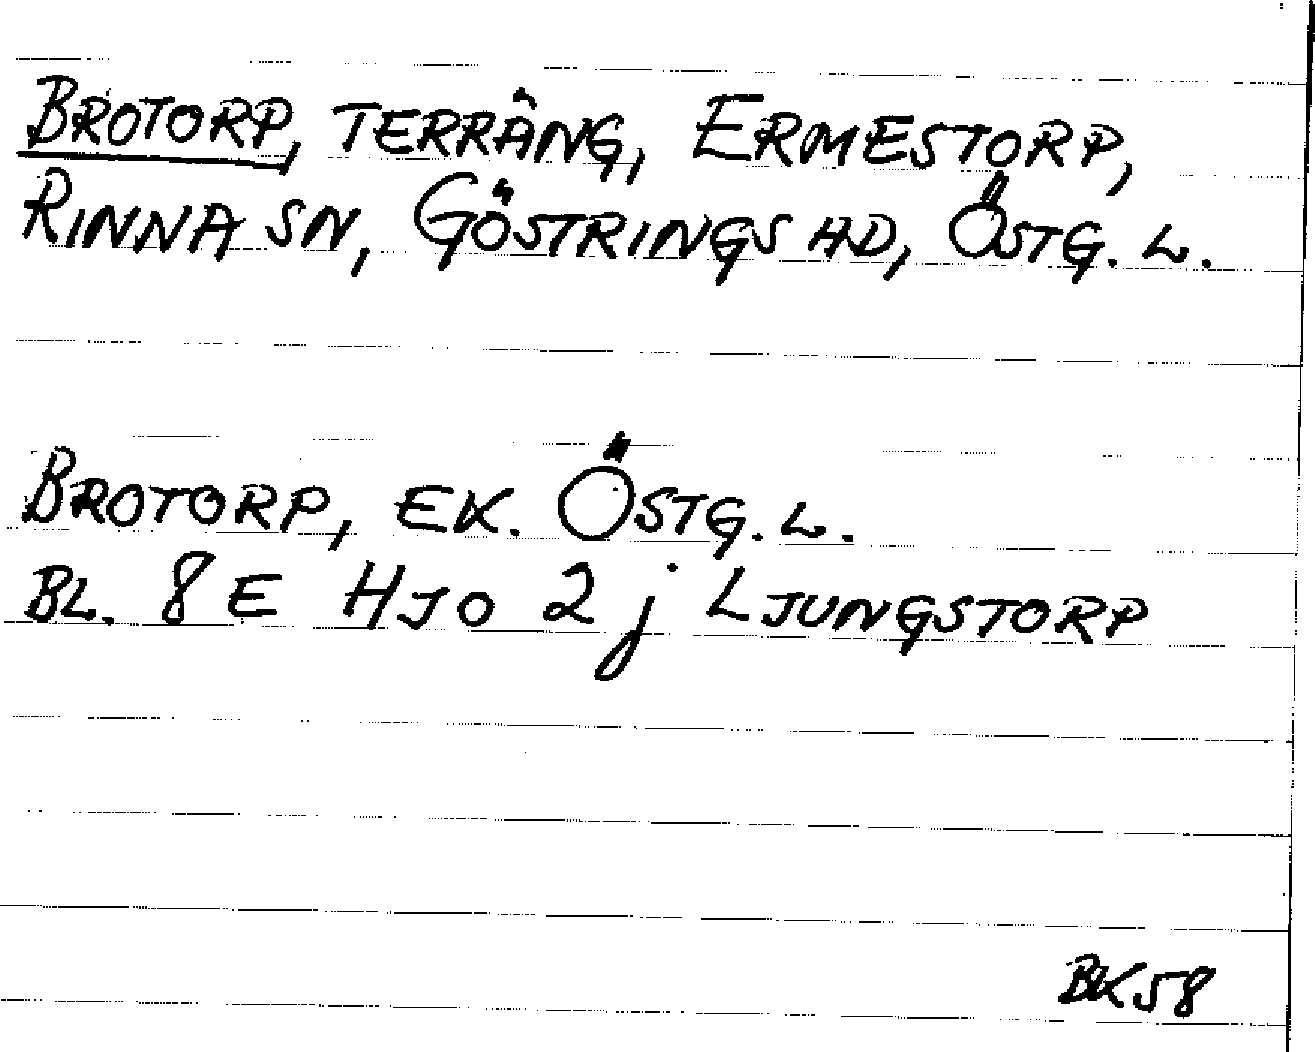 BROTORP, TERRÄNG, ERMESTORP,
RINNA SN, GÖSTRINGS HD, ÖSTG. L.
BROTORP, EK. ÖSTG. L.
BL. 8 E HJO 2 j LJUNGSTORP
BK58